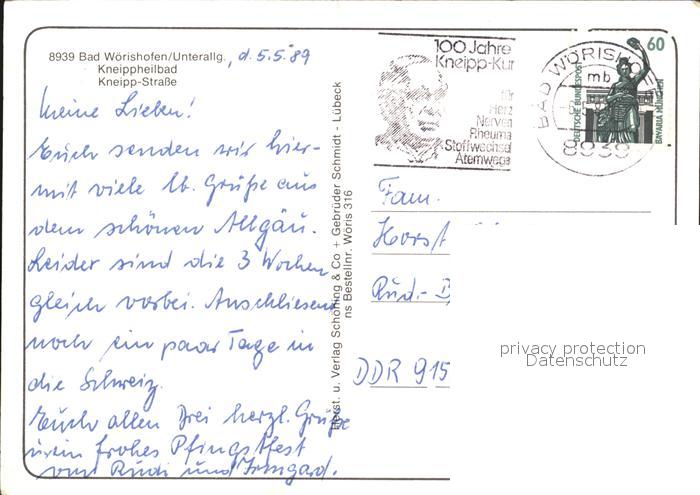 8939 Bad Wörishofen/Unterallg.
Kneippheilbad
Kneipp-Straße
, d. 5.5.89
Meine Lieben!
Euch senden wir hier-
mit viele lb. Grüße aus
dem schönen Allgäu.
Leider sind die 3 Wochen
gleich vorbei. Anschliesend
noch ein paar Tage in
die Schweiz.
Euch allen Drei herzl. Grüße
u. ein frohes Pfingstfest
von Rudi und Irmgard.
Herst. u. Verlag Schöning & Co + Gebrüder Schmidt - Lübeck
ns Bestellnr. Wöris 316
100 Jahre
Kneipp-Kur
für
Herz
Nerven
Rheuma
Stoffwechsel
Atemwege
BAD WÖRISHOF
mb
8939
60
DEUTSCHE BUNDESPOST
BAVARIA MÜNCHEN
Fam.
Horst
Rud.-
DDR 915
privacy protection
Datenschutz